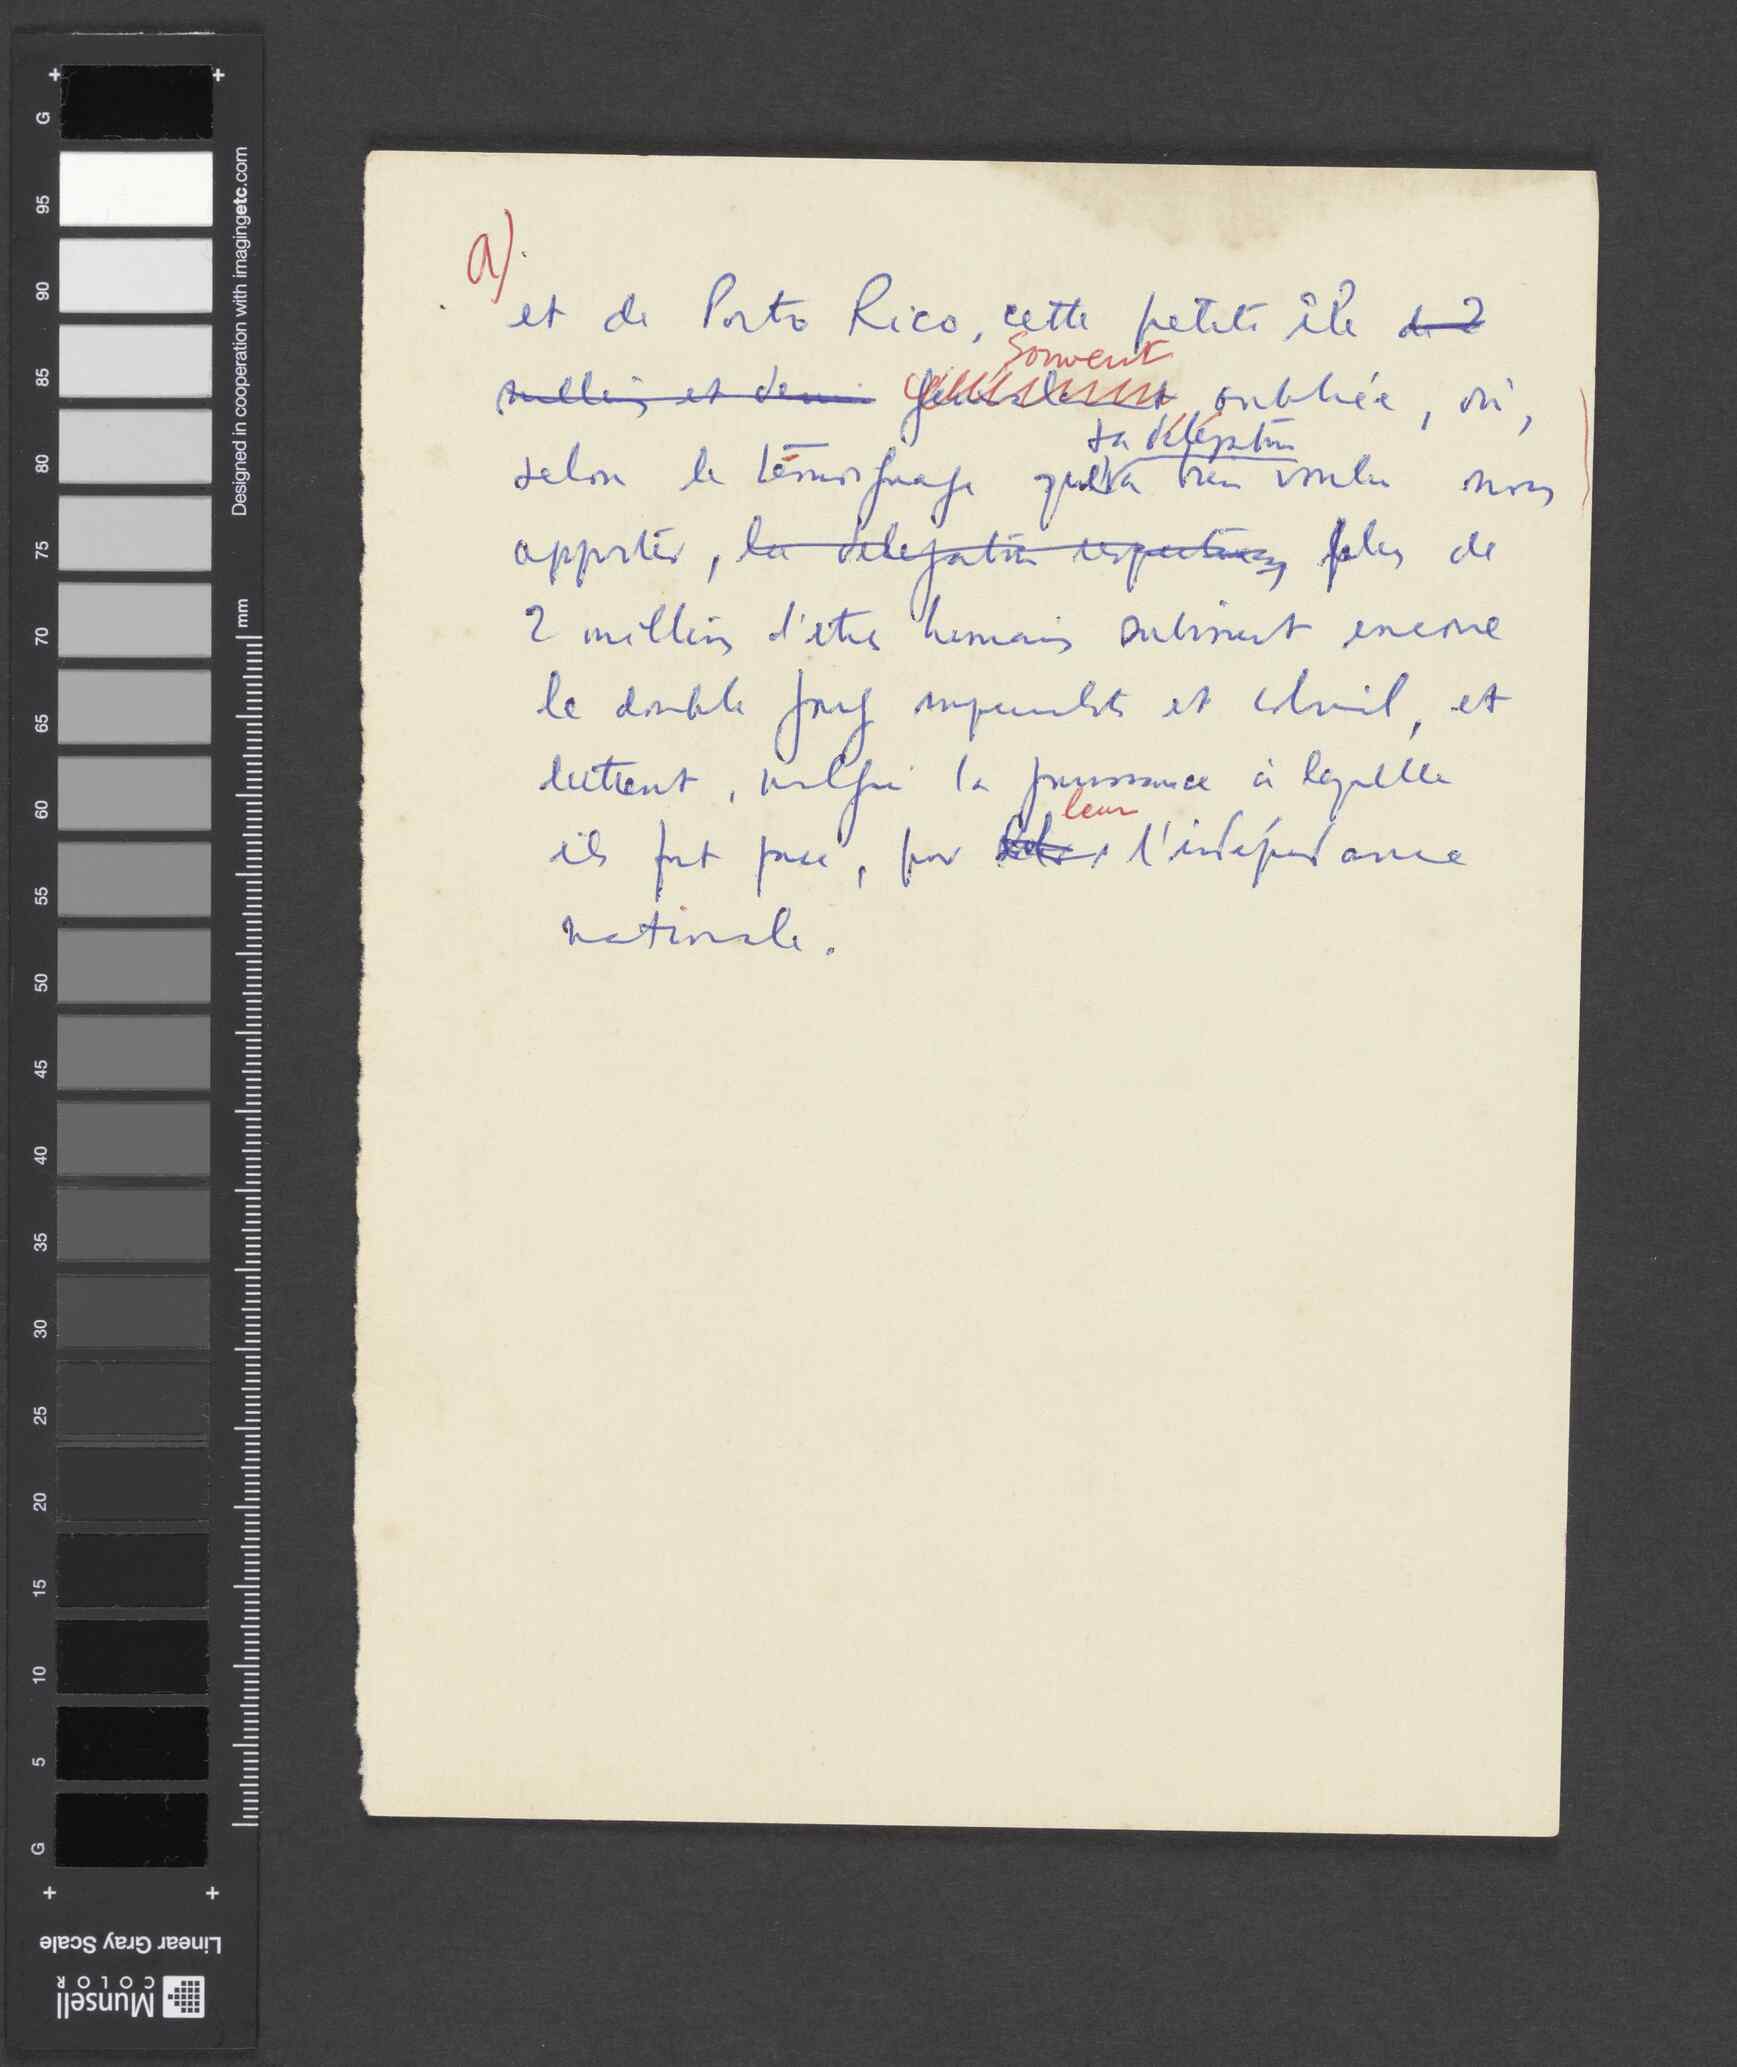 a)
et de Porto Rico, cette petite île de 2
millions et demi généralement souvent oubliée, où,
selon le témoignage qu'a sa délégation bien voulu nous
apporter, la délégation respective, plus de
2 millions d'êtres humains subissent encore
le double joug impérialiste et colonial, et
luttent, malgré la puissance à laquelle
ils font face, pour leur l'indépendance
nationale.
G
95
90
85
80
75
70
65
60
55
50
45
40
35
30
25
20
15
10
5
G
Designed in cooperation with imagingetc.com
mm
Linear Gray Scale
Munsell
COLOR